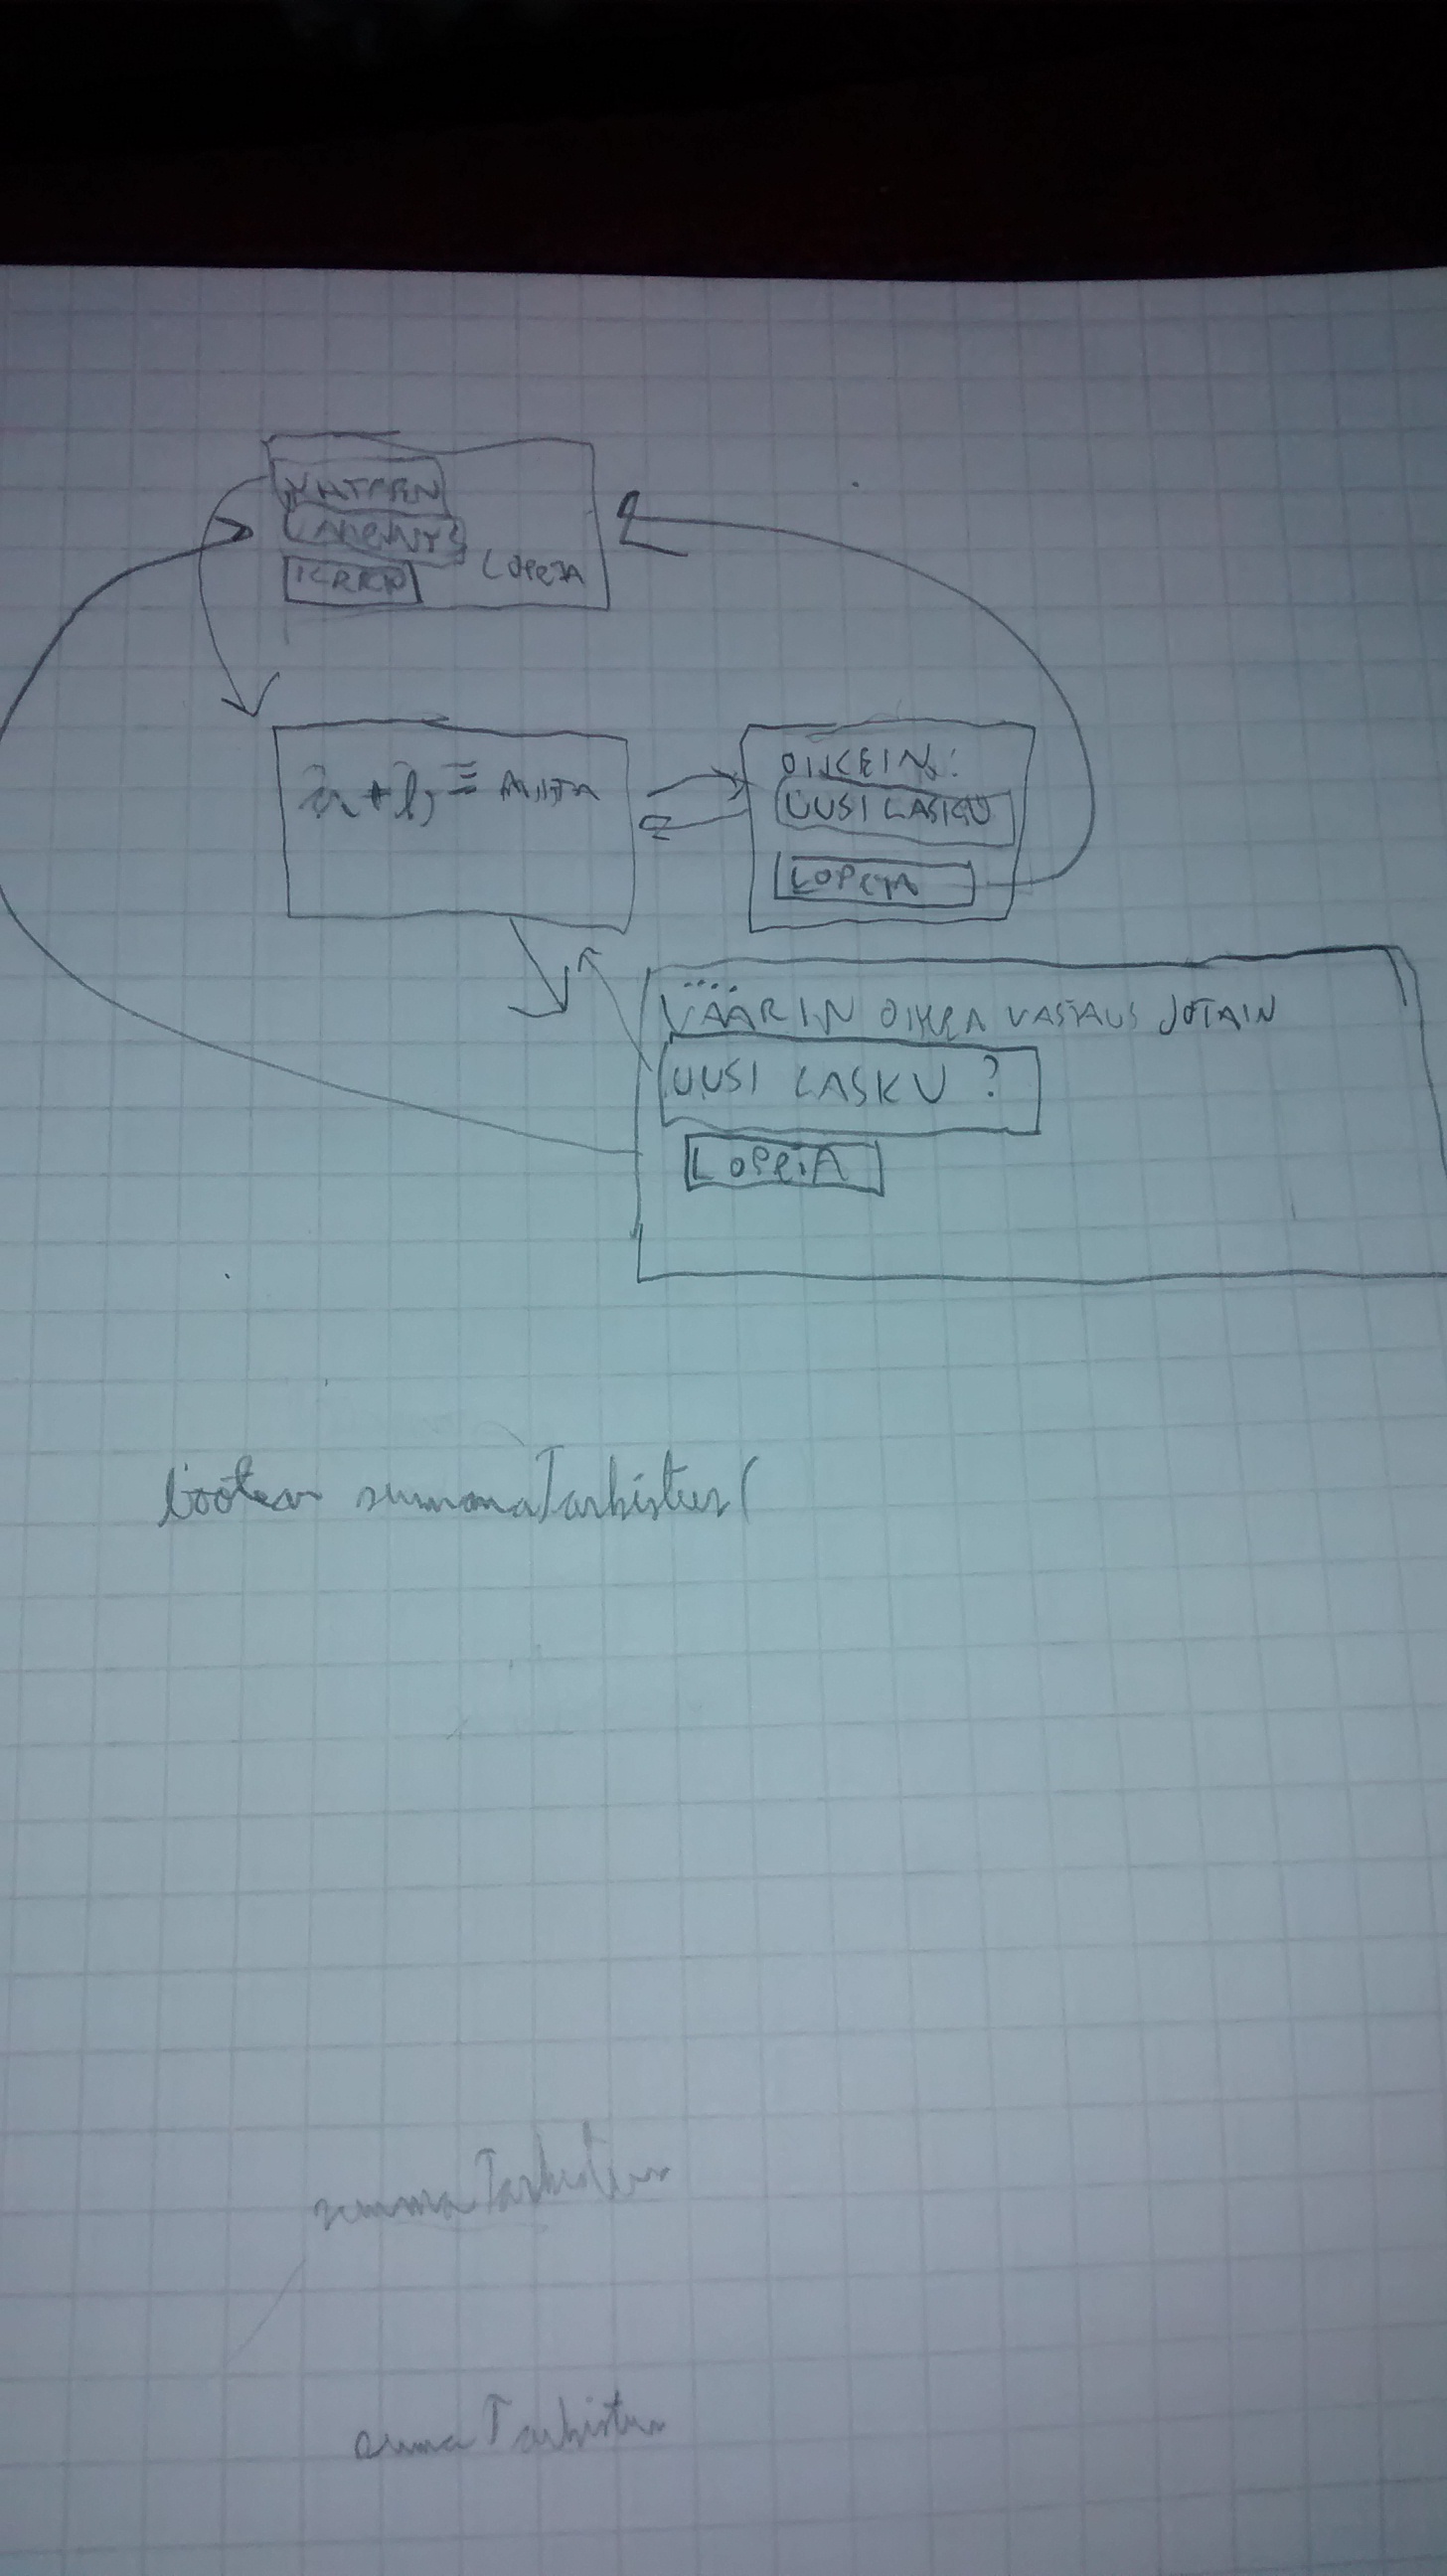 YHTEEN
LOPETA
a + b =
OIKEIN:
UUSI LASKU
LOPETA
VÄÄRIN OIKEA VASTAUS JOTAIN
UUSI LASKU ?
LOPETA
boolean summaTarkistus(
summaTarkistus
summaTarkistus